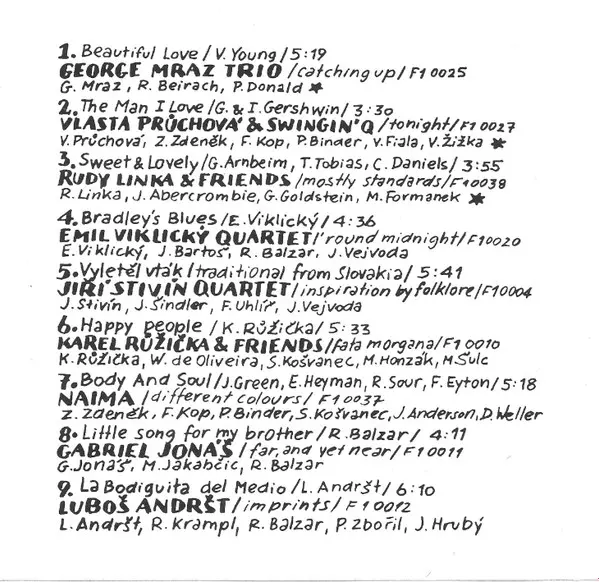 1. Beautiful Love / V. Young / 5:19
GEORGE MRAZ TRIO / catching up / F1 0025
G. Mraz, R. Beirach, P. Donald ★
2. The Man I Love / G. & I. Gershwin / 3:30
VLASTA PRŮCHOVÁ & SWINGIN'Q / tonight / F1 0027
V. Průchová, Z. Zdeněk, F. Kop, P. Binder, V. Fiala, V. Žižka ★
3. Sweet & Lovely / G. Arnheim, T. Tobias, C. Daniels / 3:55
RUDY LINKA & FRIENDS / mostly standards / F1 0038
R. Linka, J. Abercrombie, G. Goldstein, M. Formanek ★
4. Bradley's Blues / E. Viklický / 4:36
EMIL VIKLICKÝ QUARTET / 'round midnight / F1 0020
E. Viklický, J. Bartoš, R. Balzar, J. Vejvoda
5. Vyletěl vták / traditional from Slovakia / 5:41
JIŘÍ STIVÍN QUARTET / inspiration by folklore / F1 0004
J. Stivín, J. Šindler, F. Uhlíř, J. Vejvoda
6. Happy people / K. Růžička / 5:33
KAREL RŮŽIČKA & FRIENDS / fata morgana / F1 0010
K. Růžička, W. de Oliveira, S. Košvanec, M. Honzák, M. Šulc
7. Body And Soul / J. Green, E. Heyman, R. Sour, F. Eyton / 5:18
NAIMA / different colours / F1 0037
Z. Zdeněk, F. Kop, P. Binder, S. Košvanec, J. Anderson, D. Weller
8. Little song for my brother / R. Balzar / 4:11
GABRIEL JONÁŠ / far, and yet near / F1 0011
G. Jonáš, M. Jakabčic, R. Balzar
9. La Bodiguita del Medio / L. Andršt / 6:10
LUBOŠ ANDRŠT / imprints / F1 0012
L. Andršt, R. Krampl, R. Balzar, P. Zbořil, J. Hrubý